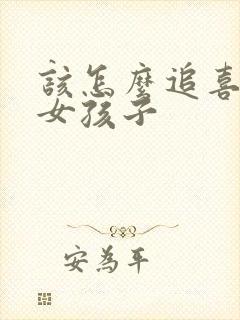 該怎麼追喜
女孩子
安為平